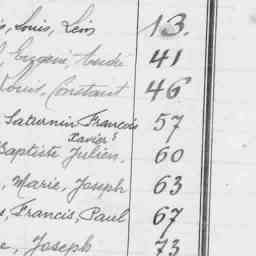 Louis, Léon 13.
Eugène, André 41
Louis, Constant 46
Saturnin François 57
Xavier
Baptiste Julien. 60
, Marie, Joseph 63
, Francis, Paul 67
, Joseph 73